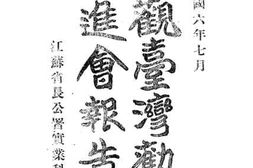 國六年七月
觀臺灣勸
進會報告
江蘇省長公署實業科